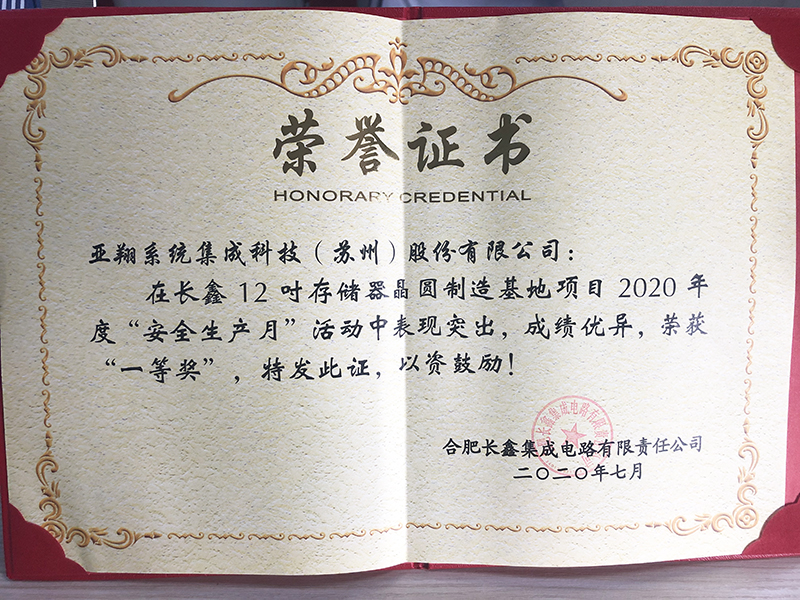 荣誉证书
HONORARY CREDENTIAL
亚翔系统集成科技（苏州）股份有限公司：
在长鑫12吋存储器晶圆制造基地项目2020年
度“安全生产月”活动中表现突出，成绩优异，荣获
“一等奖”，特发此证，以资鼓励！
合肥长鑫集成电路有限责任公司
二〇二〇年七月